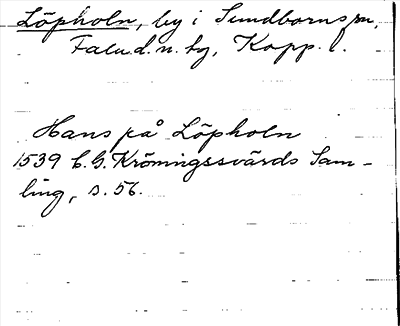 Löpholn, by i Sundborns sn,
Falu d. n. tg, Kopp. l.
Hans på Löpholn
1539 C. G. Kröningssvärds Sam-
ling, s. 56.